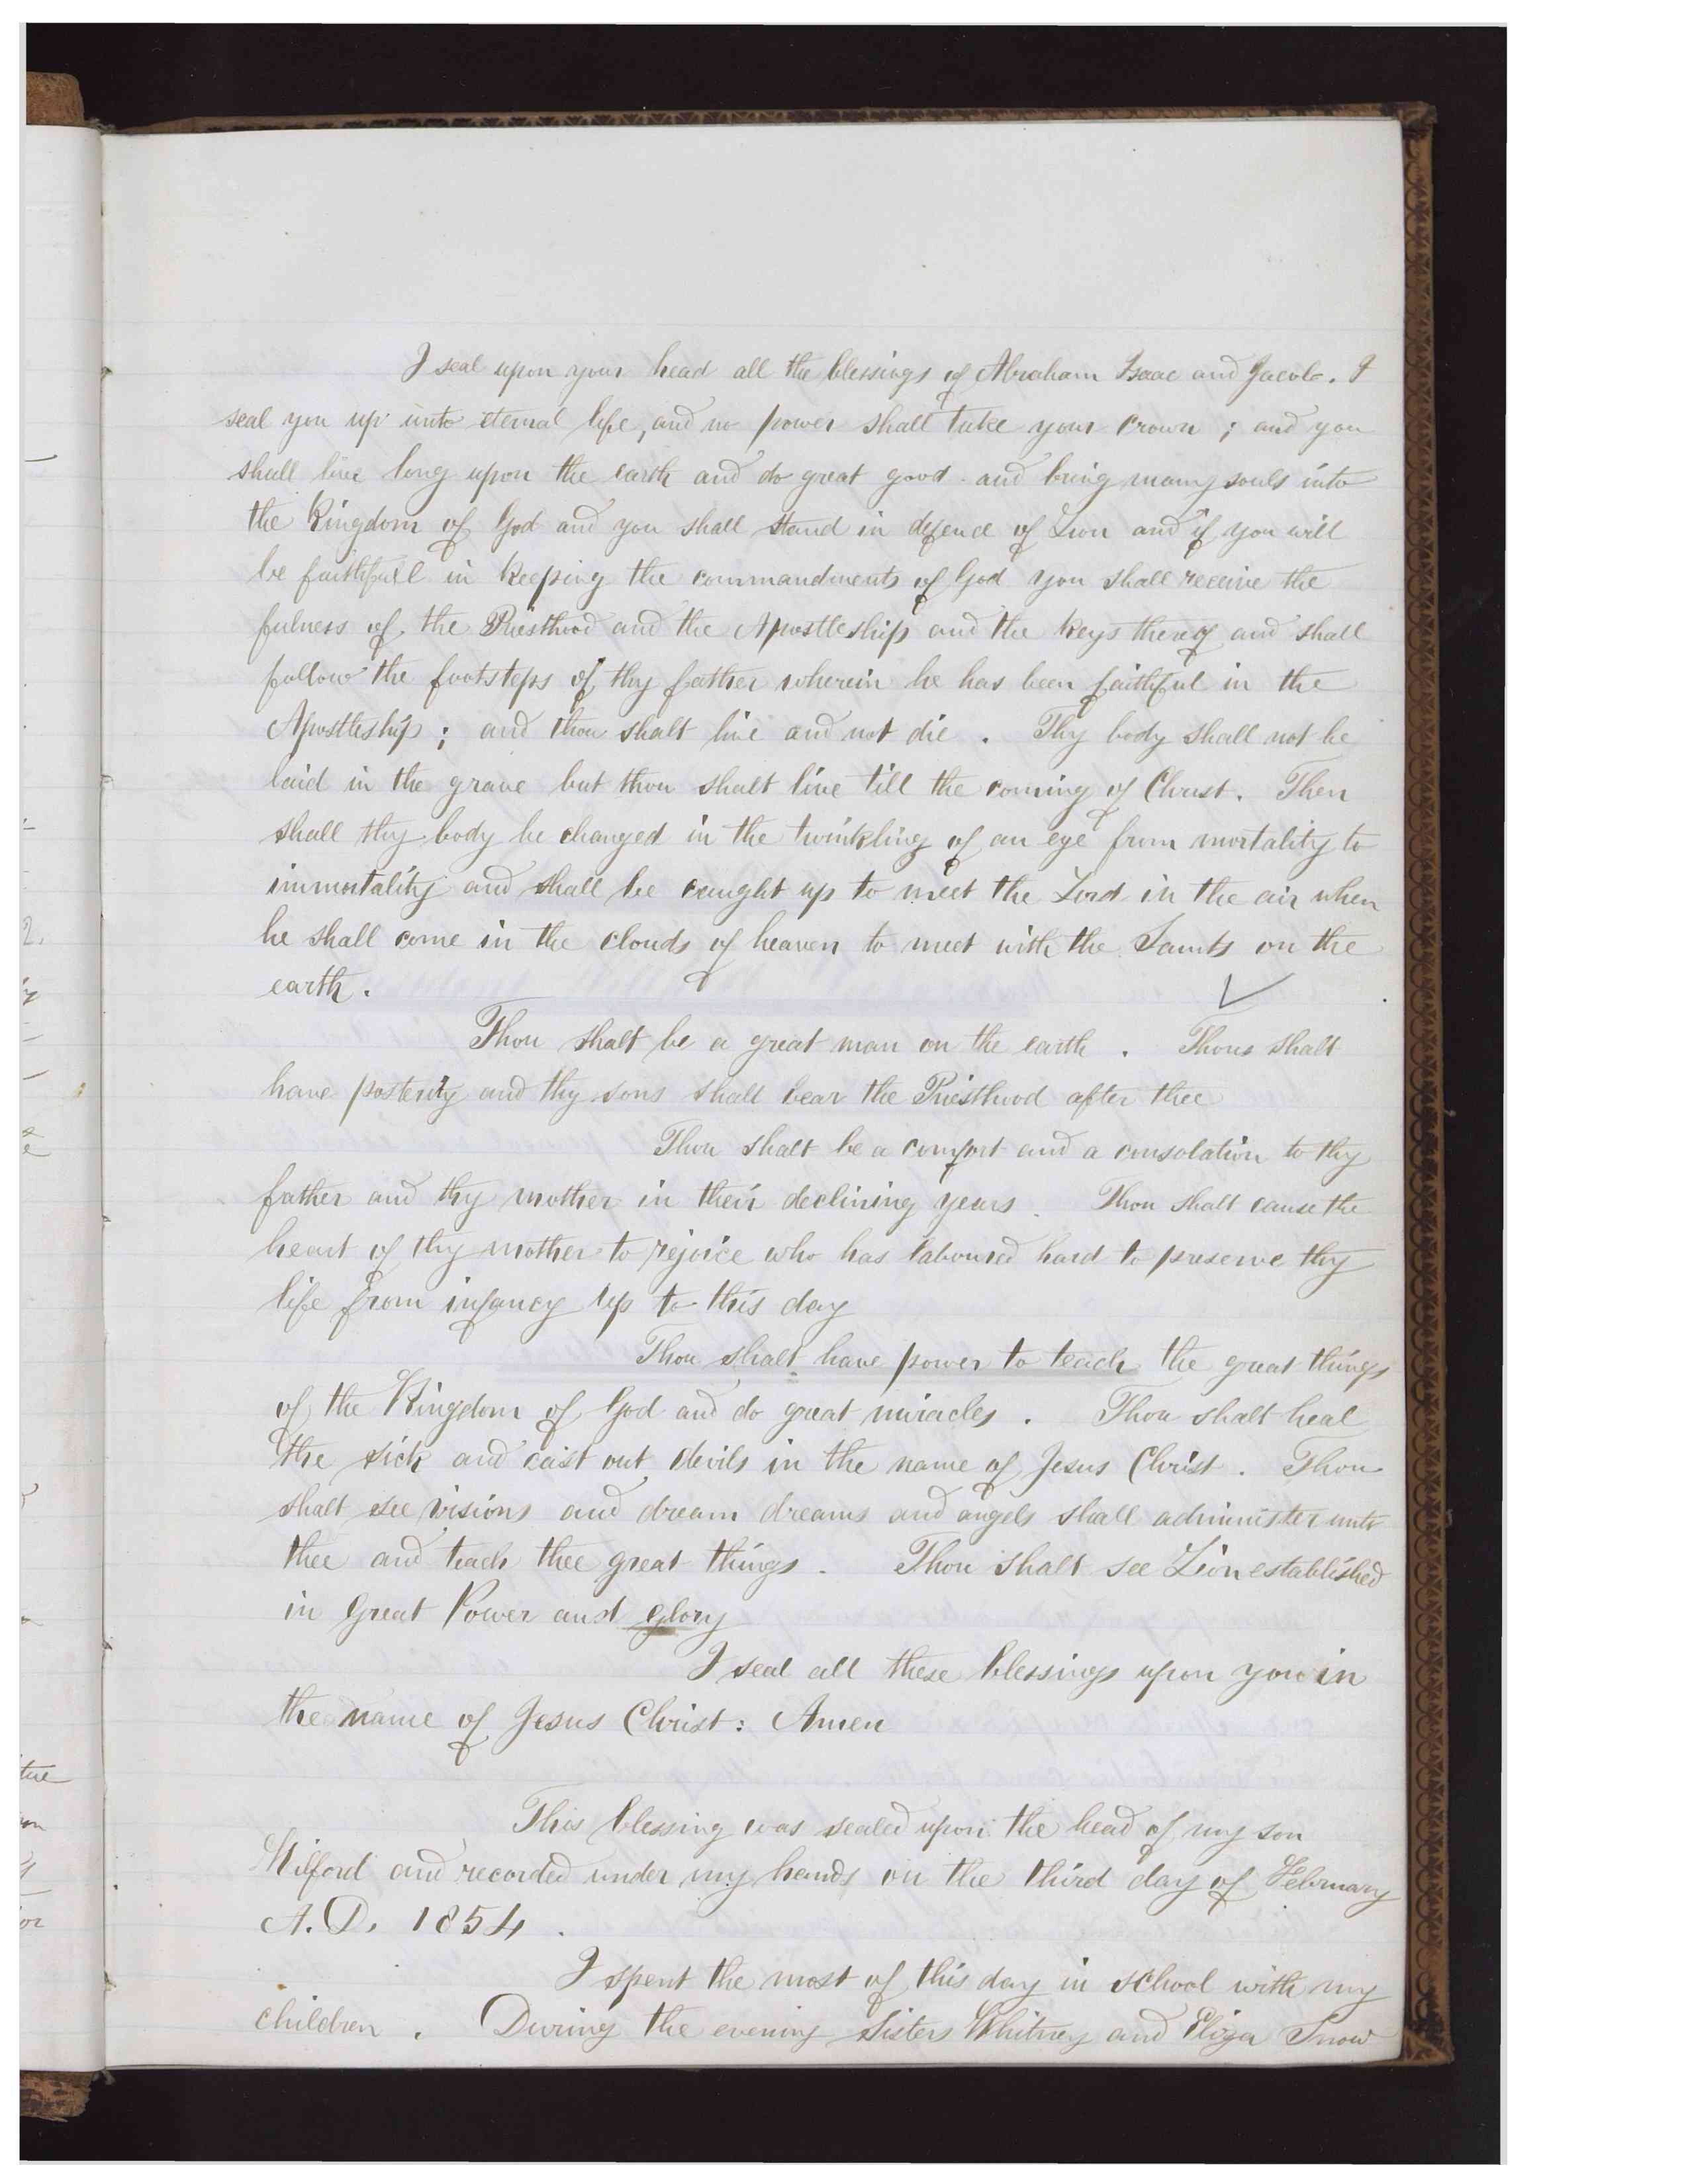 I seal upon your head all the blessings of Abraham Isaac and Jacob. I
seal you up unto eternal life, and no power shall take your crown ; and you
shall live long upon the earth and do great good and bring many souls into
the Kingdom of God and you shall stand in defence of Zion and if you will
be faithfull in keeping the commandments of God you shall receive the
fulness of the Priesthood and the Apostleship and the keys thereof and shall
follow the footsteps of thy father wherein he has been faithful in the
Apostleship ; and thou shalt live and not die . Thy body shall not be
laid in the grave but thou shalt live till the coming of Christ. Then
shall thy body be changed in the twinkling of an eye from mortality to
immortality and shall be caught up to meet the Lord in the air when
he shall come in the clouds of heaven to meet with the Saints on the
earth .
Thou shalt be a great man on the earth . Thou shalt
have posterity and thy sons shall bear the Priesthood after thee
Thou shalt be a comfort and a consolation to thy
father and thy mother in their declining years . Thou shalt cause the
heart of thy mother to rejoice who has laboured hard to preserve thy
life from infancy up to this day
Thou shalt have power to teach the great things
of the Kingdom of God and do great miracles . Thou shalt heal
the sick and cast out devils in the name of Jesus Christ . Thou
shalt see visions and dream dreams and angels shall administer unto
thee and teach thee great things . Thou shalt see Zion established
in great Power and glory
I seal all these blessings upon you in
the name of Jesus Christ : Amen
This blessing was sealed upon the head of my son
Wilford and recorded under my hands on the third day of February
A.D. 1854 .
I spent the most of this day in school with my
children . During the evening Sisters Whitney and Eliza Snow